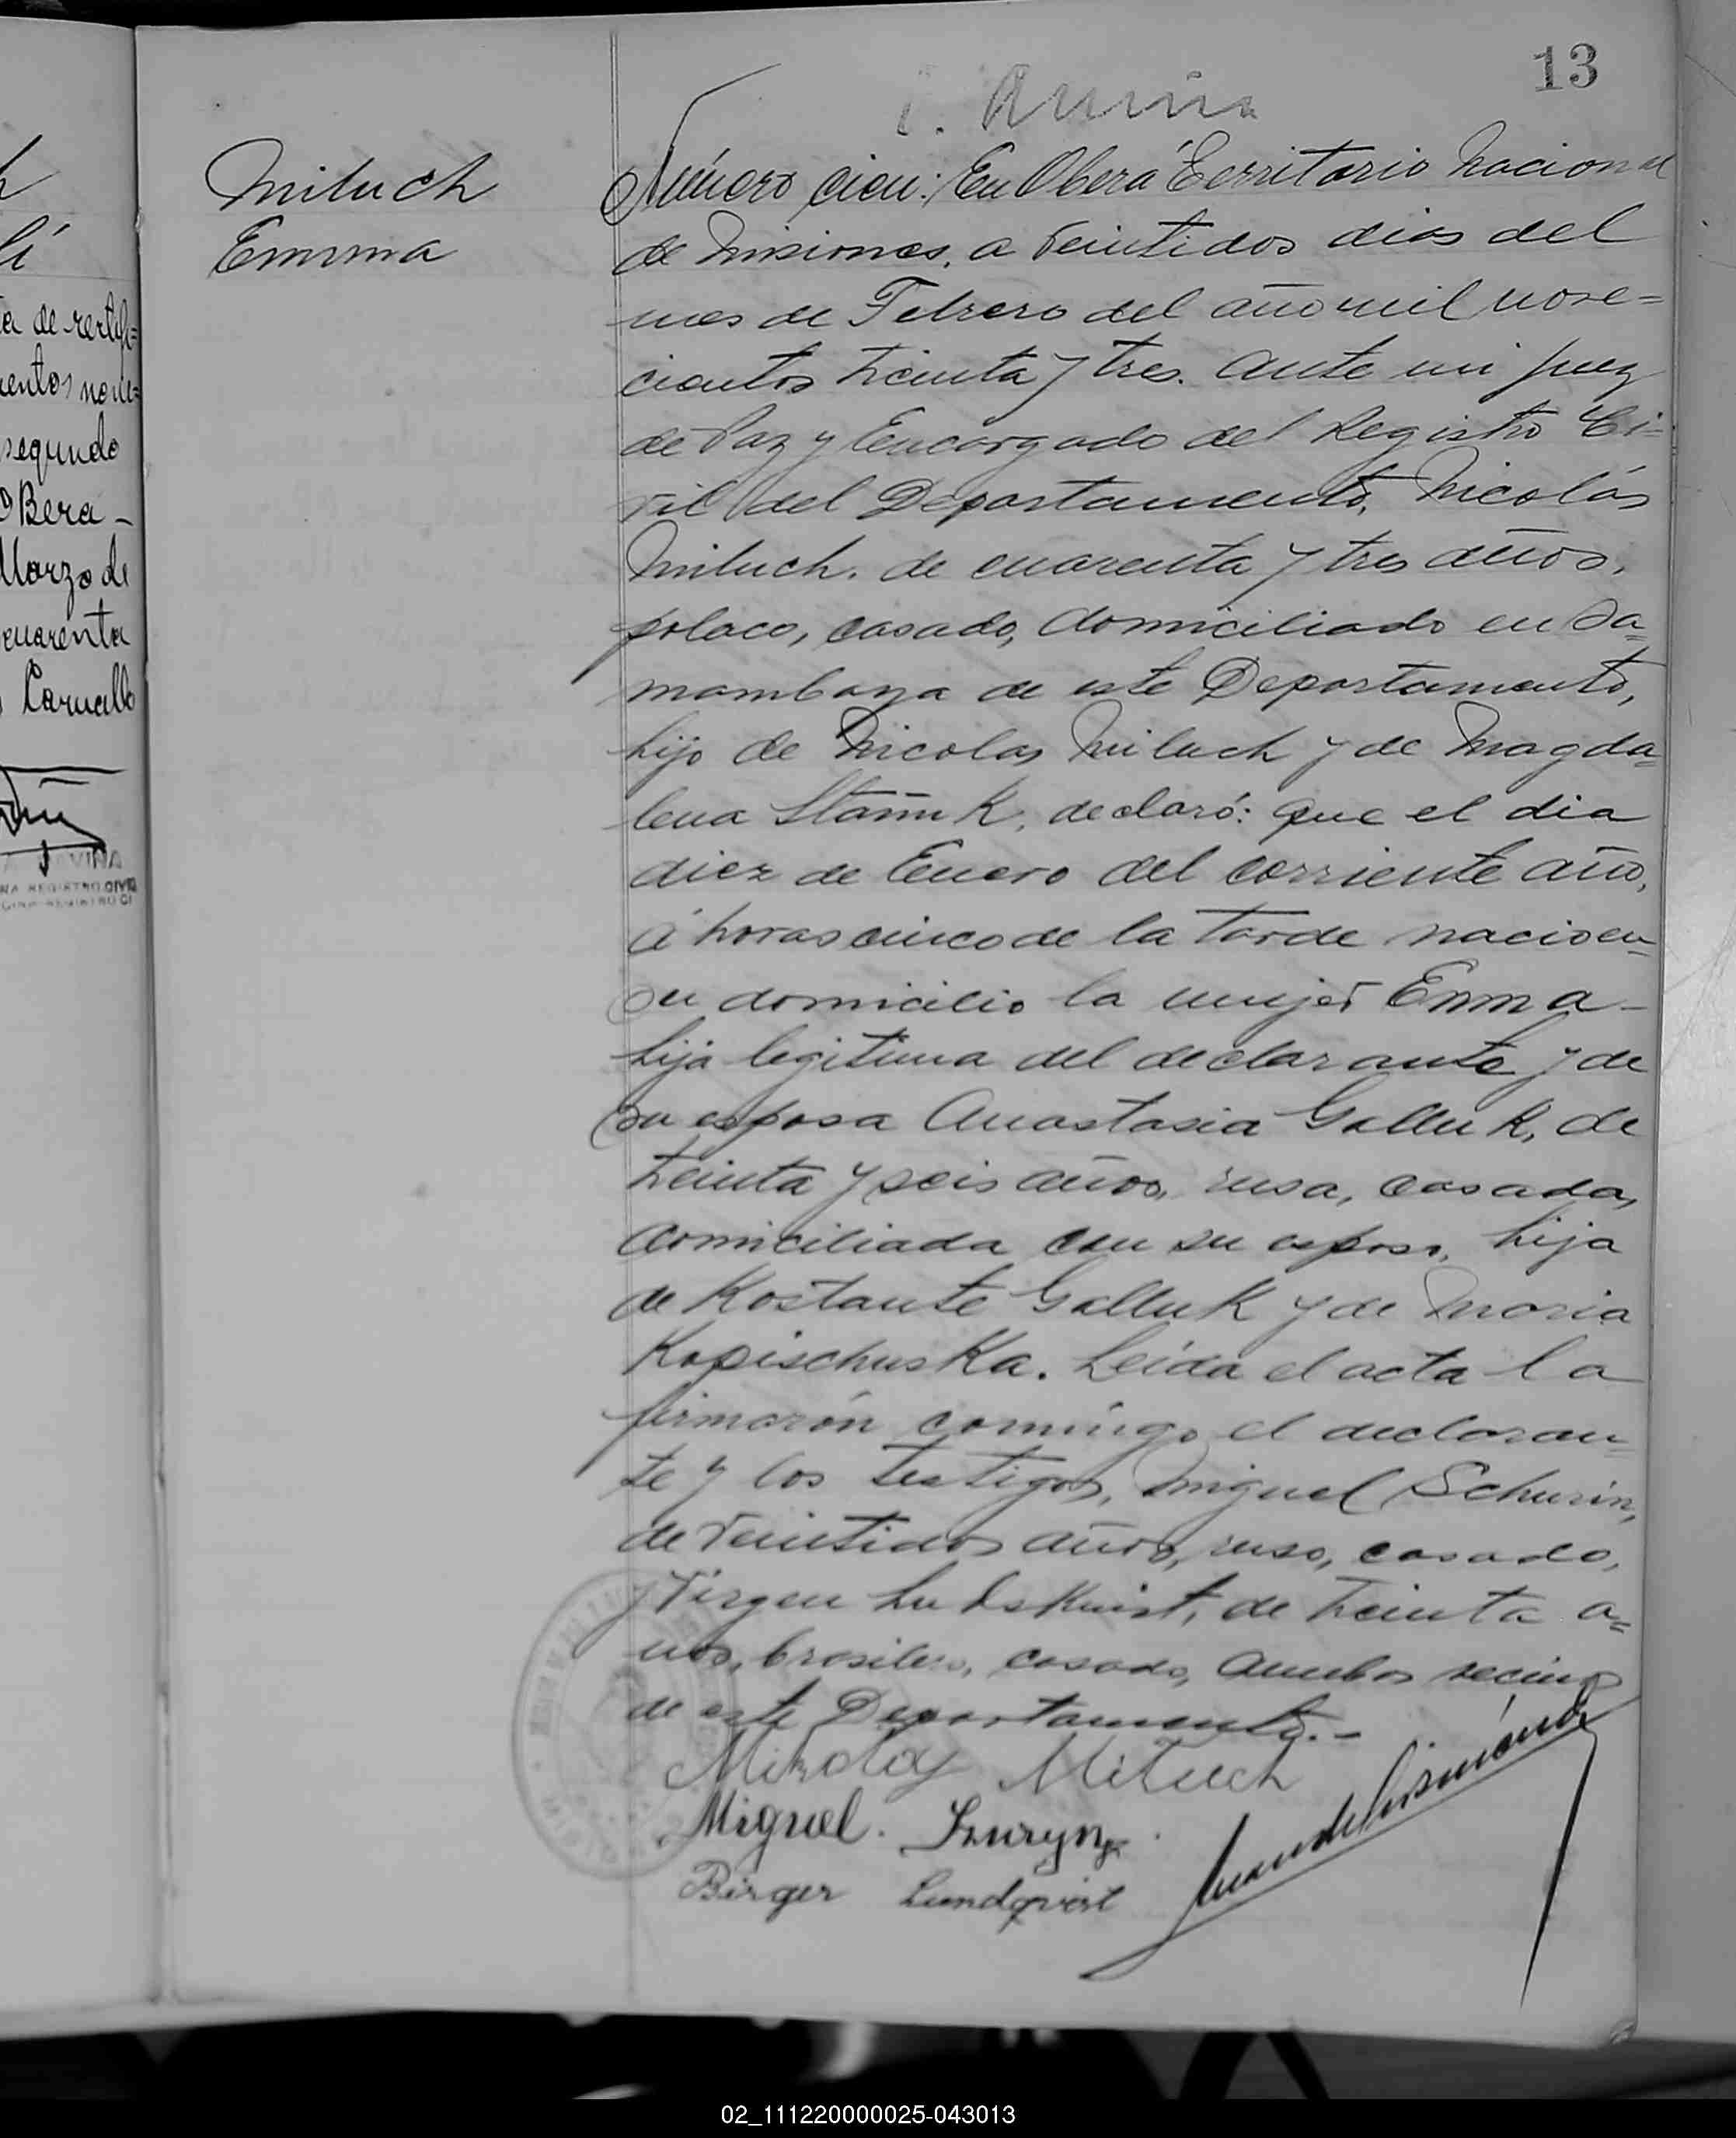 13
Miluch
Emma
Número cien: En Oberá Territorio Nacional
de Misiones, a veintidos dias del
mes de Febrero del año mil nove=
cientos treinta y tres. Ante mi Juez
de Paz y Encargado del Registro Ci-
vil del Departamento, Nicolás
Miluch, de cuarenta y tres años,
polaco, casado, domiciliado en Sa=
mambaya de este Departamento,
hijo de Nicolas Miluch y de Magda=
lena declaró: que el dia
diez de Enero del corriente año,
á horas cinco de la tarde nacio en
su domicilio la mujer Emma-
hija legitima del declarante y de
su esposa Anastasia Galluk, de
treinta y seis años, rusa, casada,
domiciliada con su esposo, hija
de Kostante Galluk y de Maria
Kopischuska. Leída el acta la
firmarón conmigo el declaran=
te y los testigos, Miguel Schurin,
de veintidos años, ruso, casado,
y Virgen de treinta a=
ños, brasilero, casado, ambos vecinos
de este Departamento.-
Mikołaj Miluch
Miguel. Szuryn
Birger Lundqvist
a de rectifi=
mentos nove=
segundo
OBera-
Marzo de
cuarenta
Carvallo
VIÑA
REGISTRO CIVIL
02_111220000025-043013